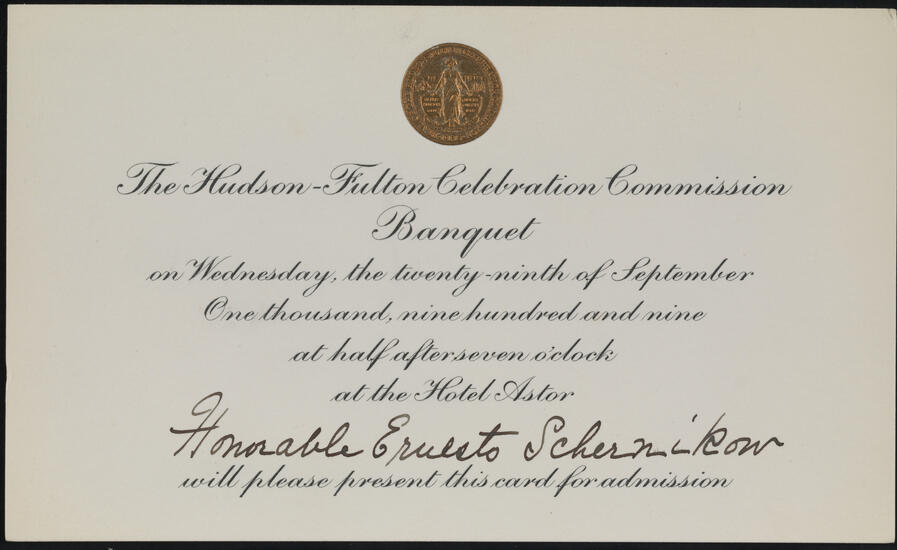 The Hudson-Fulton Celebration Commission
Banquet
on Wednesday, the twenty-ninth of September
One thousand, nine hundred and nine
at half after seven o'clock
at the Hotel Astor
Honorable Ernesto Schernikow
will please present this card for admission